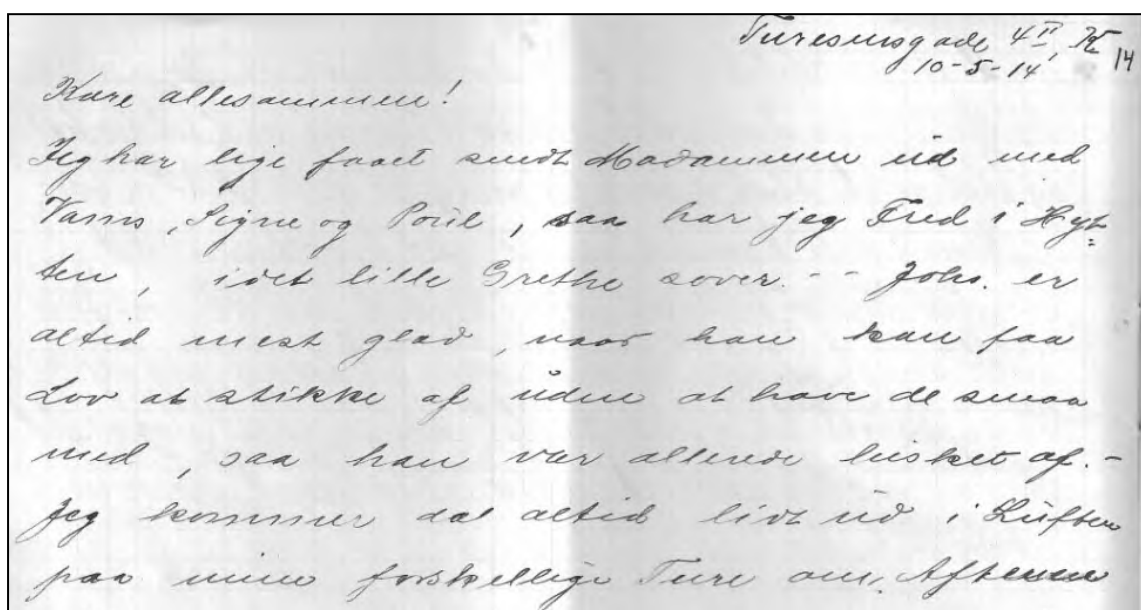 Turesensgade 4 II, K 14
10-5-14
Kære allesammen!
Jeg har lige faaet sendt Madammen ud med
Vams, Signe og Poul, saa har jeg Fred i Hyt-
ten, idet lille Grethe sover. - - Johs. er
altid mest glad, naar han kan faa
Lov at stikke af uden at have de smaa
med, saa han var allerede lusket af. -
Jeg kommer da altid lidt ud i Luften
paa mine forskellige Ture om Aftenen